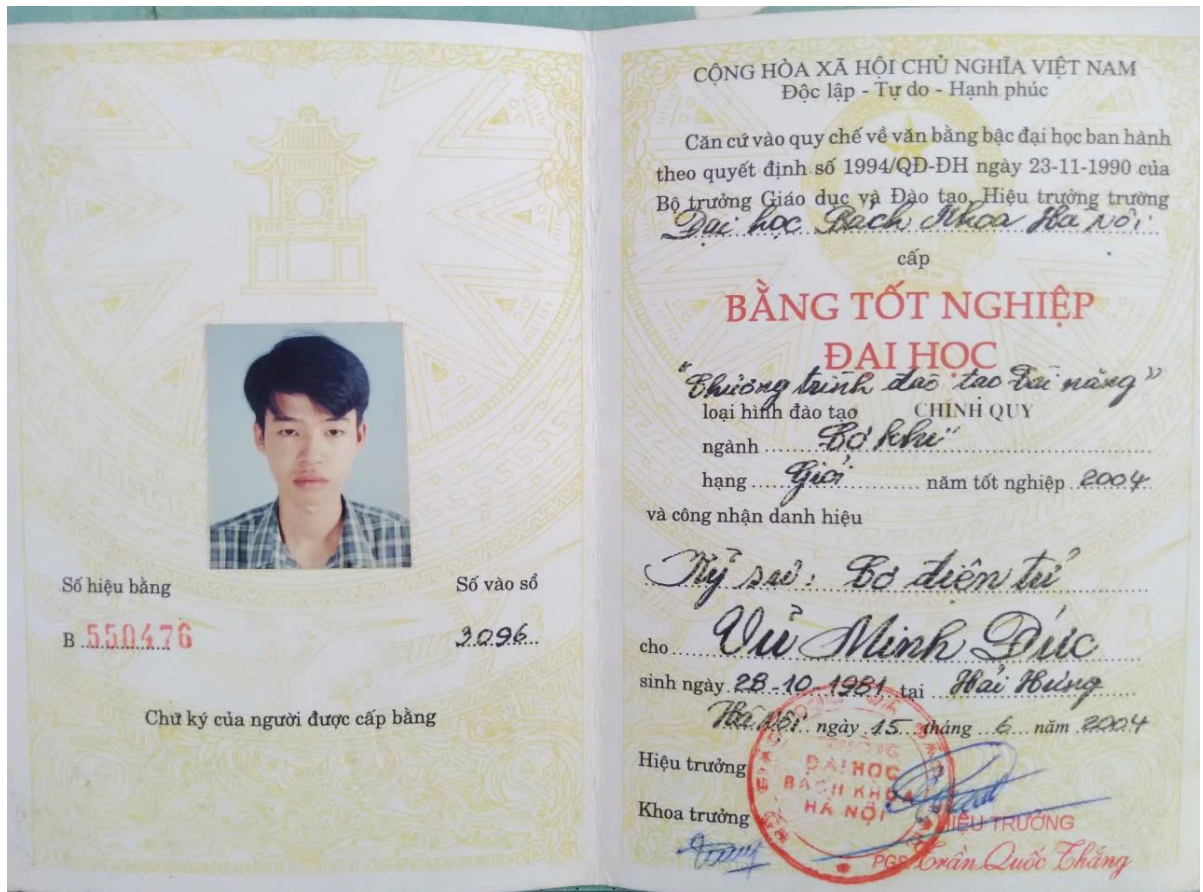 Số hiệu bằng
Số vào sổ
B 550476
3096
Chữ ký của người được cấp bằng
CỘNG HÒA XÃ HỘI CHỦ NGHĨA VIỆT NAM
Độc lập - Tự do - Hạnh phúc
Căn cứ vào quy chế về văn bằng bậc đại học ban hành
theo quyết định số 1994/QĐ-ĐH ngày 23-11-1990 của
Bộ trưởng Giáo dục và Đào tạo, Hiệu trưởng trường
Đại học Bách Khoa Hà Nội
cấp
BẰNG TỐT NGHIỆP
ĐẠI HỌC
"Chương trình đào tạo Tài năng"
loại hình đào tạo CHÍNH QUY
ngành Cơ khí
hạng Giỏi năm tốt nghiệp 2004
và công nhận danh hiệu
Kỹ sư: Cơ điện tử
cho Vũ Minh Đức
sinh ngày 28-10-1981 tại Hải Hưng
Hà Nội ngày 15 tháng 6 năm 2004
Hiệu trưởng
ĐẠI HỌC
BÁCH KHOA
HÀ NỘI
Khoa trưởng
HIỆU TRƯỞNG
PGS Trần Quốc Thắng